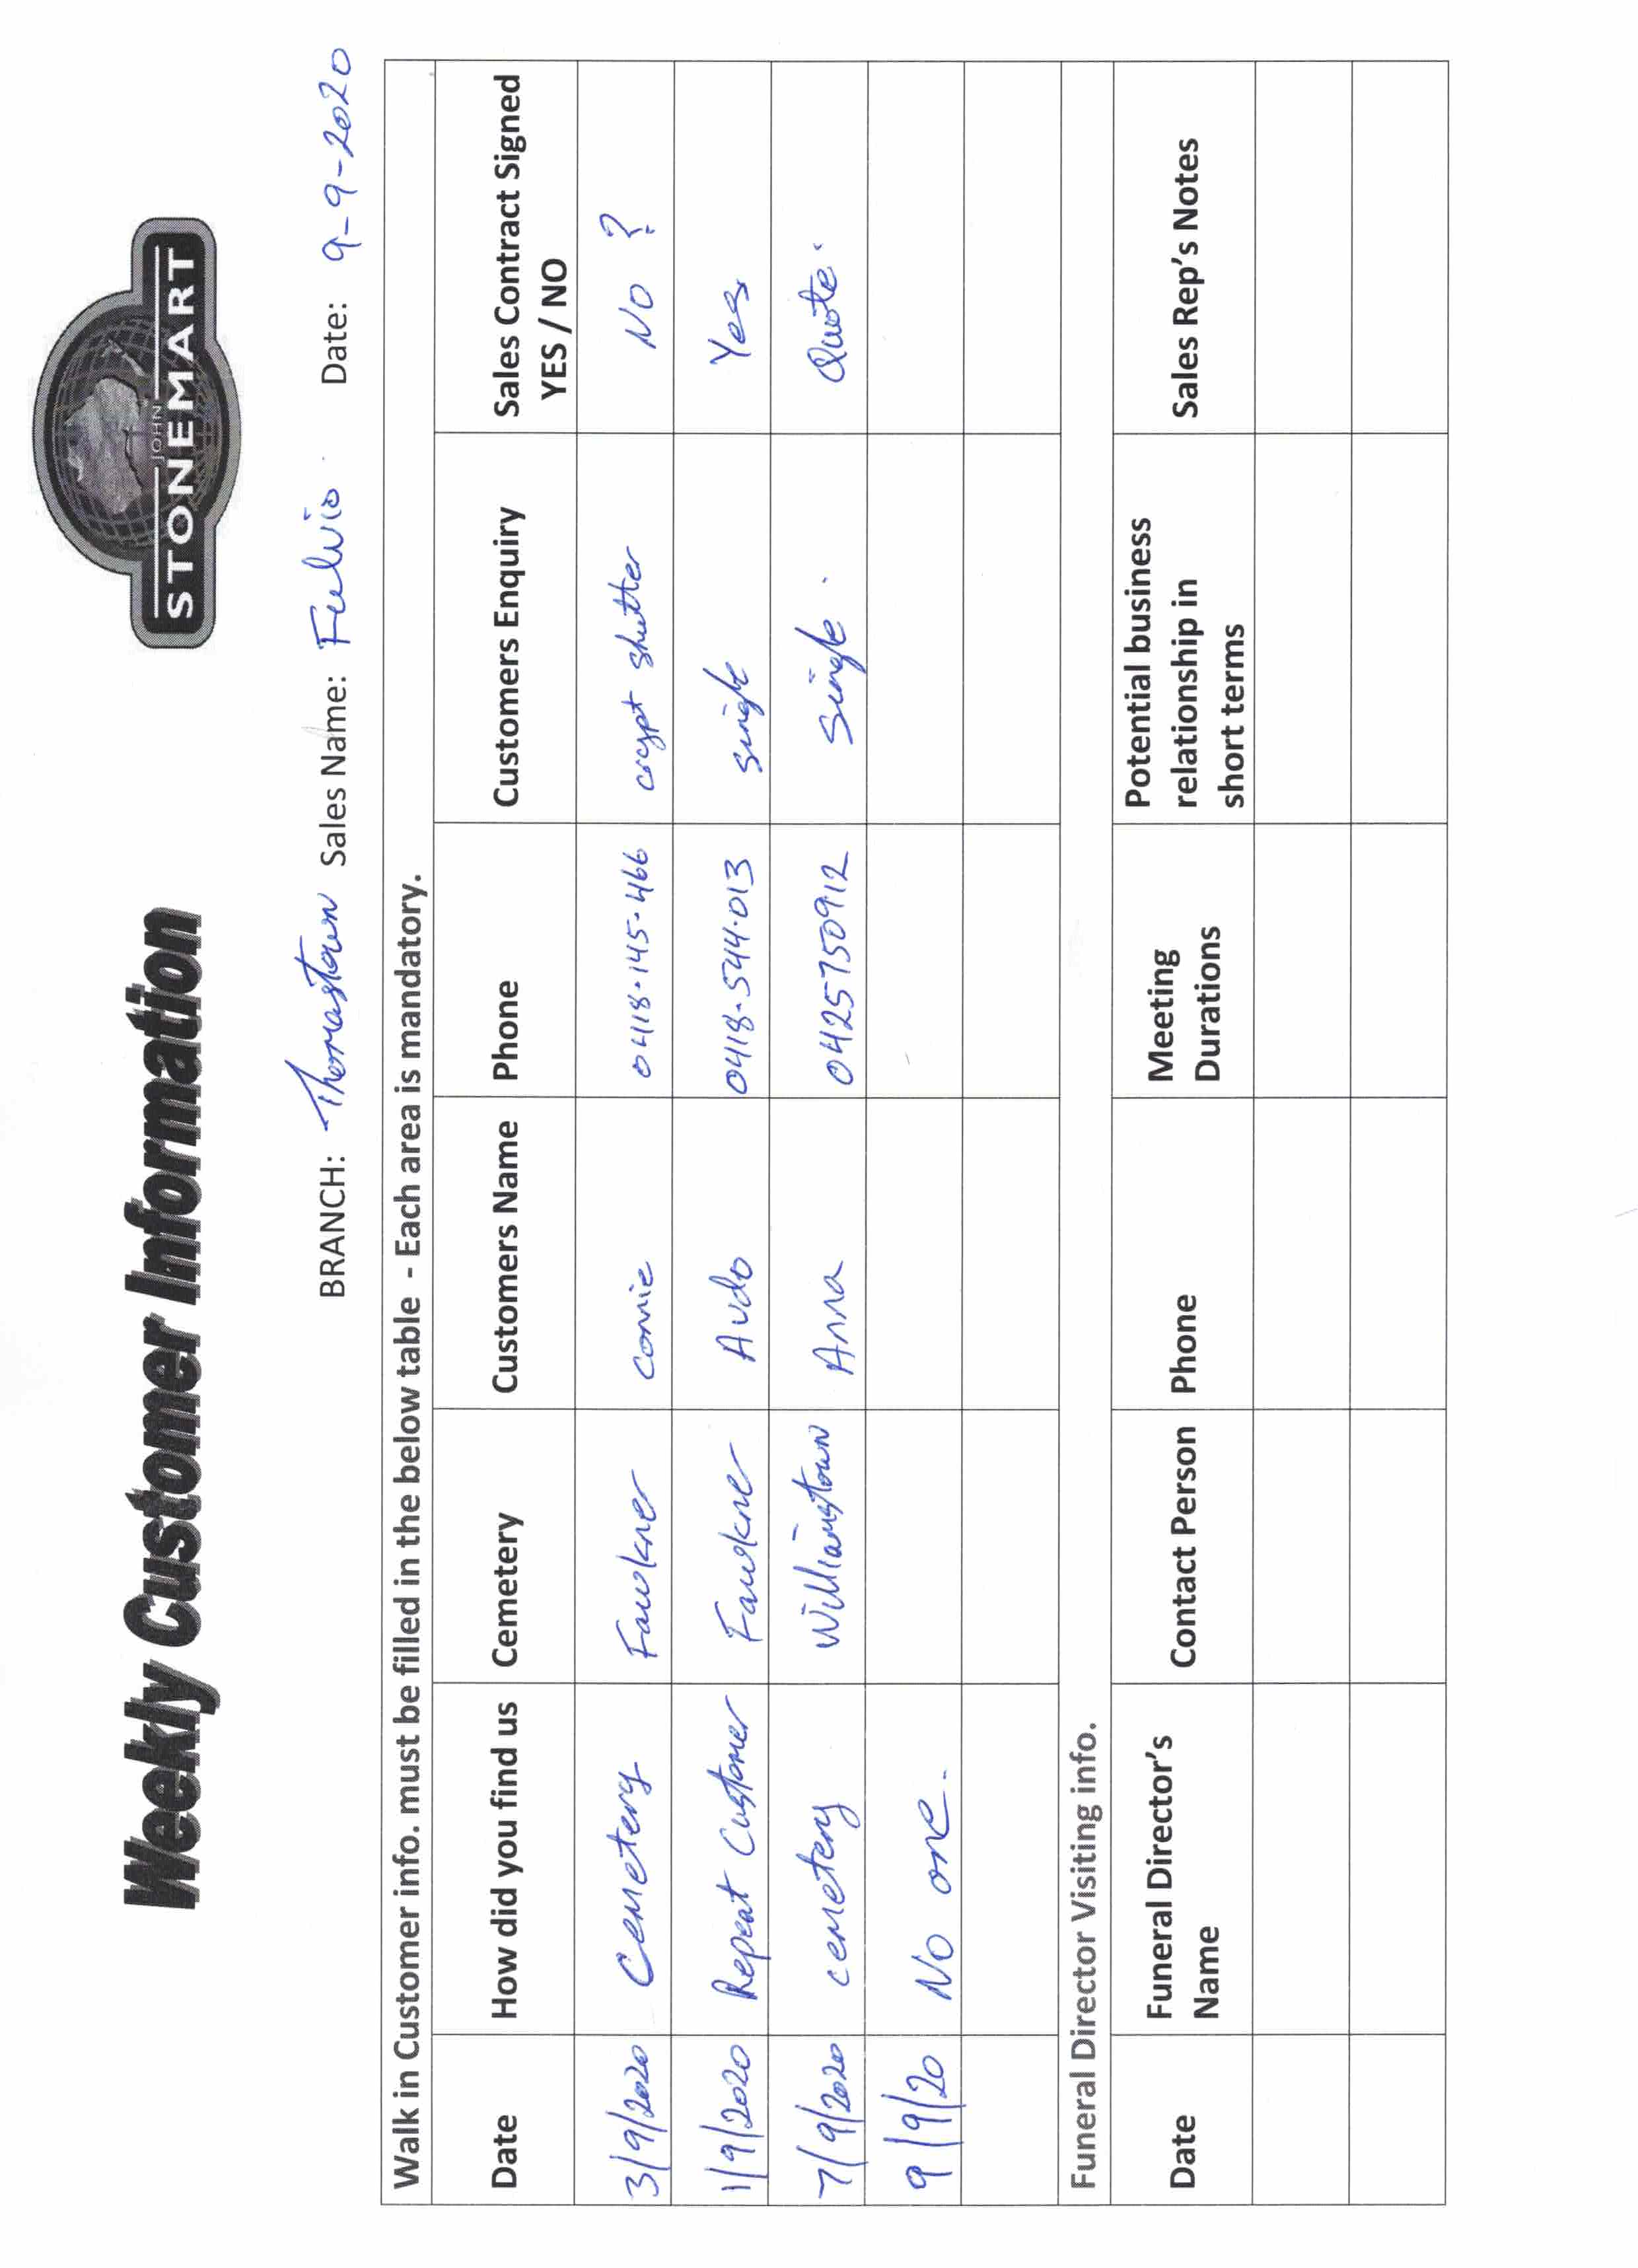 Weekly Customer Information
JOHN
STONEMART
BRANCH: Thomastown Sales Name: Fulvio. Date: 9-9-2020
Walk in Customer info. must be filled in the below table - Each area is mandatory.
Date How did you find us Cemetery Customers Name Phone Customers Enquiry Sales Contract Signed YES / NO
3/9/2020 Cemetery Fawkner Connie 0418-145-466 crypt shutter No ?
1/9/2020 Repeat Customer Fawkner Audo 0418-544-013 single Yes
7/9/2020 cemetery Williamstown Anna 0425750912 single. Quote.
9/9/20 No one.
Funeral Director Visiting info.
Date Funeral Director's Name Contact Person Phone Meeting Durations Potential business relationship in short terms Sales Rep's Notes